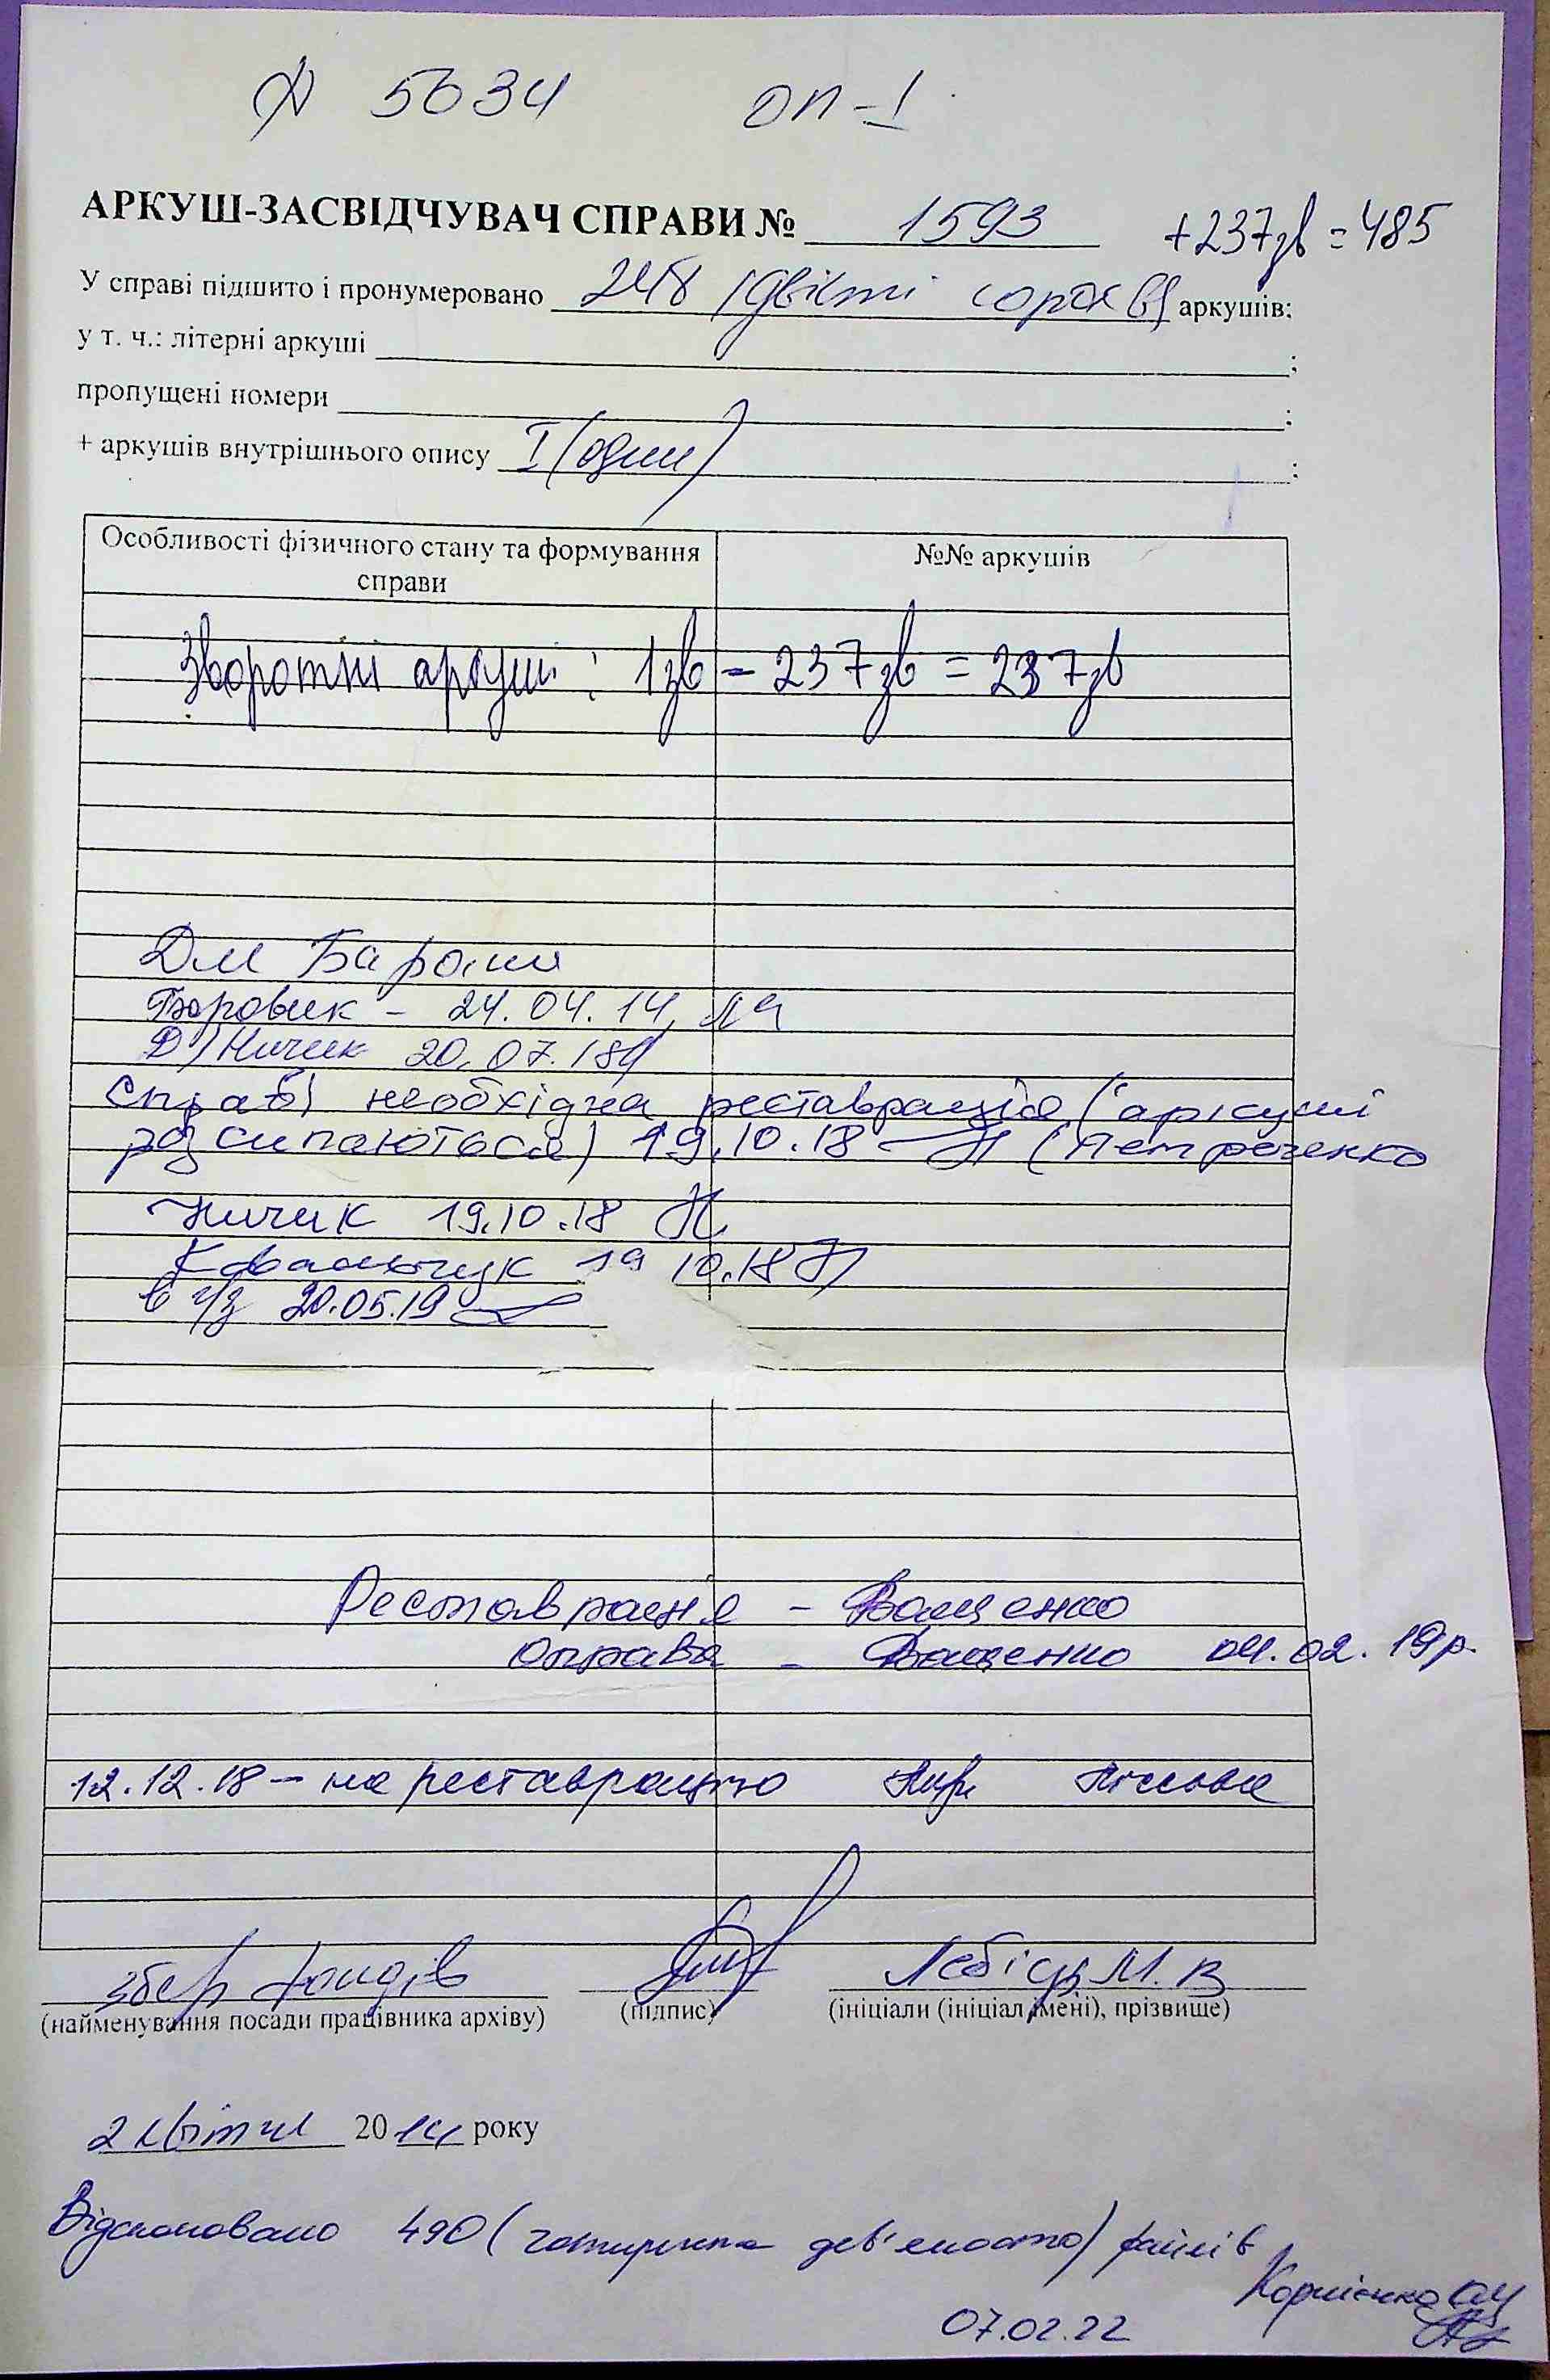 5634 оп-1
АРКУШ-ЗАСВІДЧУВАЧ СПРАВИ № 1593 +237зв = 485
У справі підшито і пронумеровано 248 (двісті сорок 8) аркушів;
у т. ч.: літерні аркуші ;
пропущені номери ;
+ аркушів внутрішнього опису I (один) ;
Особливості фізичного стану та формування справи
№№ аркушів
Зворотні аркуші : 1зв - 237зв = 237зв
Дм
Боровик - 24.04.14,
Ничик 20.07.18
Справі необхідна реставрація (аркуші
розсипаються) 19.10.18 (Петреченко
Ничик 19.10.18
Ковальчук 19 10.18
в ч/з 20.05.19
Реставрація - Ващенко
Оправа - Ващенко 04.02.19р.
12.12.18 - на реставрацію
збер фондів
М. В
(найменування посади працівника архіву) (підпис) (ініціали (ініціал імені), прізвище)
2 квітня 2014 року
Відскановано 490 (чотириста дев'яносто) файлів
Корнієнко
07.02.22